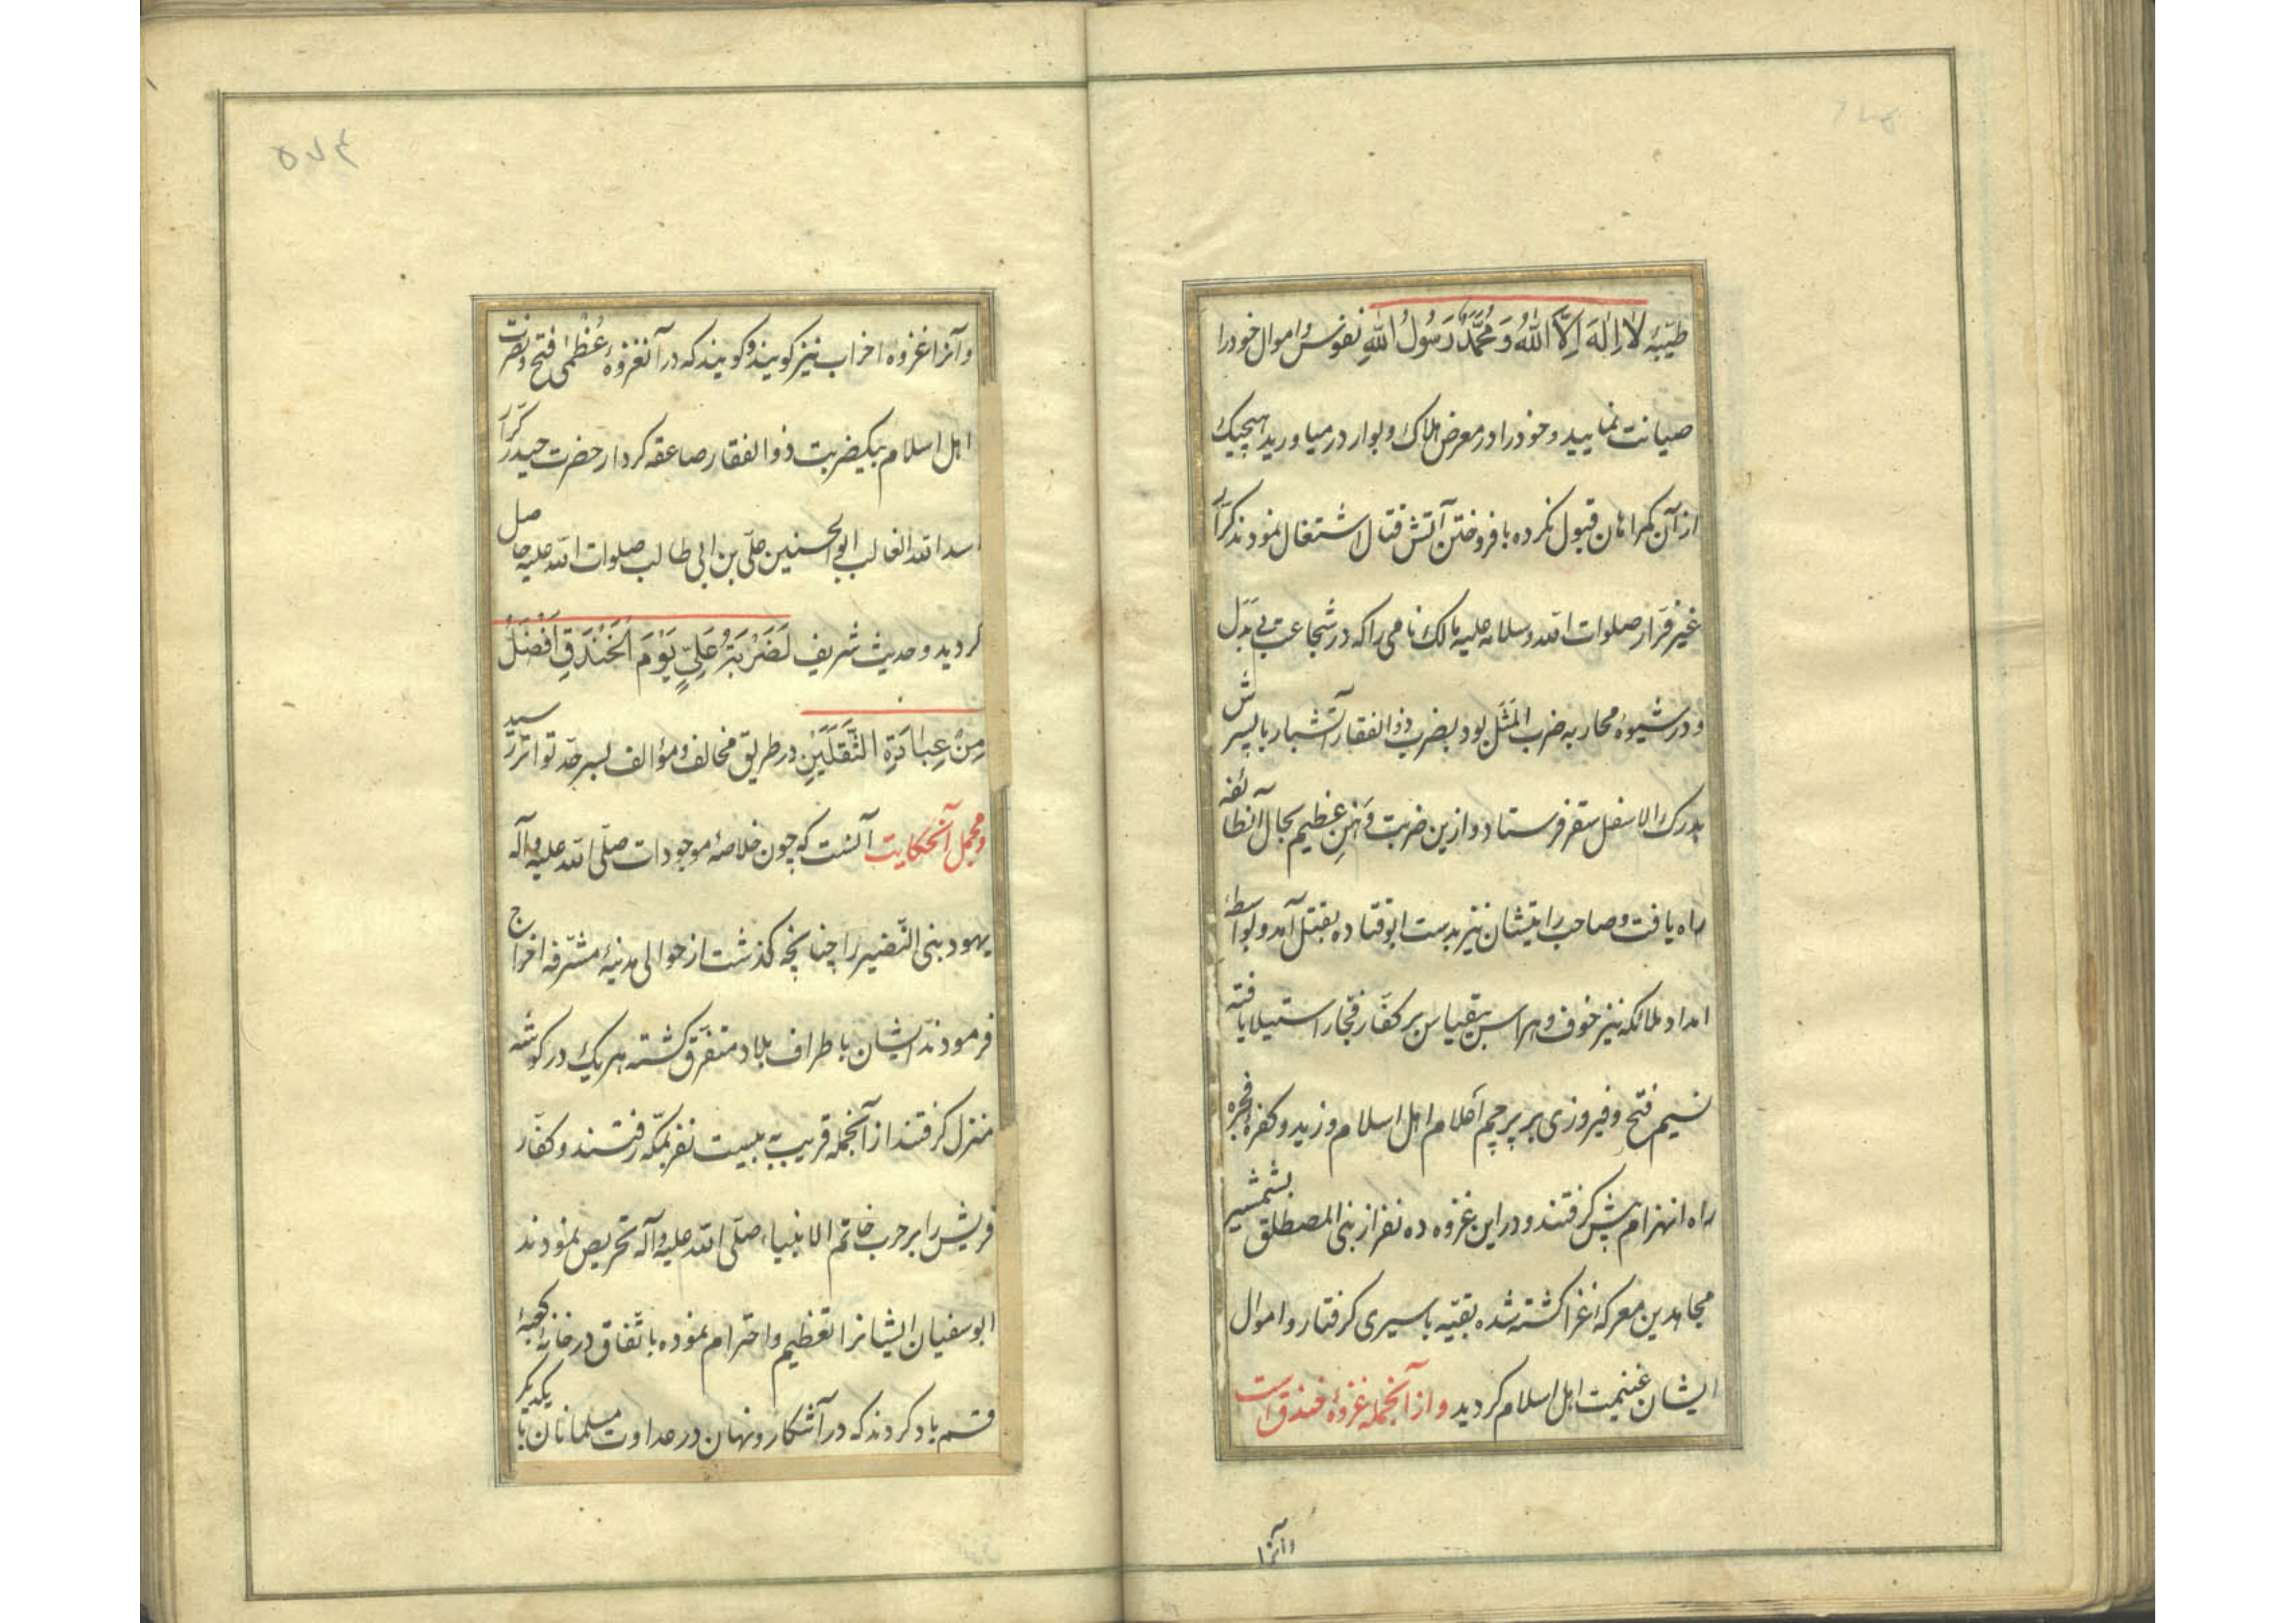 طیّبهٔ لَا اِلٰهَ اِلَّا اللّٰهُ وَ مُحَمَّدٌ رَسُولُ اللّٰهِ نفوس و اموال خود را
صیانت نمایید و خود را در معرض هلاک و بوار در میاورید هیچیک
از آن کمراهان قبول نکرده بافروختن آتش قتال اشتغال نمودند کرّار
غیر فَرّار صلوات الله و سلامه علیه مالک نامی را که در شجاعت بی بَدَل
و در شیوهٔ محاربه ضرب المَثَل بود بضرب ذوالفقار آتشبار با پسرش
بدرک الاسفل سقر فرستاد و ازین ضربت وَهنِ عظیم بحال آنطائفه
راه یافت و صاحب رایتشان نیز بدست ابوقتاده بقتل آمد و بواسطهٔ
امداد ملائکه نیز خوف و هراس بیقیاس بر کفّار فجّار استیلا یافته
نسیم فتح و فیروزی بر پرچم اَعلام اهل اسلام وزید و کفرهٔ فجره
راه انهزام پیش کرفتند و در این غزوه ده نفر از بنی المصطلق بشمشیر
مجاهدین معرکهٔ غزا کشته شده بقیّه باسیری کرفتار و اموال
ایشان غنیمت اهل اسلام کردید و از آنجمله غزوهٔ خندق است
و آنرا
۵۷۴
و آنرا غزوهٔ احزاب نیز کویند و کویند که در آنغزوهٔ عُظمی فتح و نصرت
اهل اسلام بیکضربت ذوالفقار صاعقه کردار حضرت حیدر کرّار
اسدالله الغالب ابوالحسنین علی بن ابی طالب صلوات الله علیه حاصل
کردید و حدیث شریف لَضَرْبَةُ عَلِیٍّ یَوْمَ الْخَنْدَقِ اَفْضَلُ
مِنْ عِبَادَةِ الثَّقَلَیْنِ در طریق مخالف و مؤالف بسرحدّ تواتر رسید
و مجمل آنحکایت آنست که چون خلاصهٔ موجودات صلّی الله علیه و آله
یهود بنی النّضیر را چنانچه کذشت از حوالی مدینهٔ مشرّفه اخراج
فرمودند ایشان باطراف بلاد متفرّق کشته هر یک در کوشه
منزل کرفتند از آنجمله قریب بیست نفر بمکّه رفتند و کفّار
قریش را بر حرب خاتم الانبیاء صلّی الله علیه و آله تحریص نمودند
ابوسفیان ایشانرا تعظیم و احترام نموده باتّفاق در خانهٔ کعبه
قسم یاد کردند که در آشکار و نهان در عداوت مسلمانان با یکدیکر